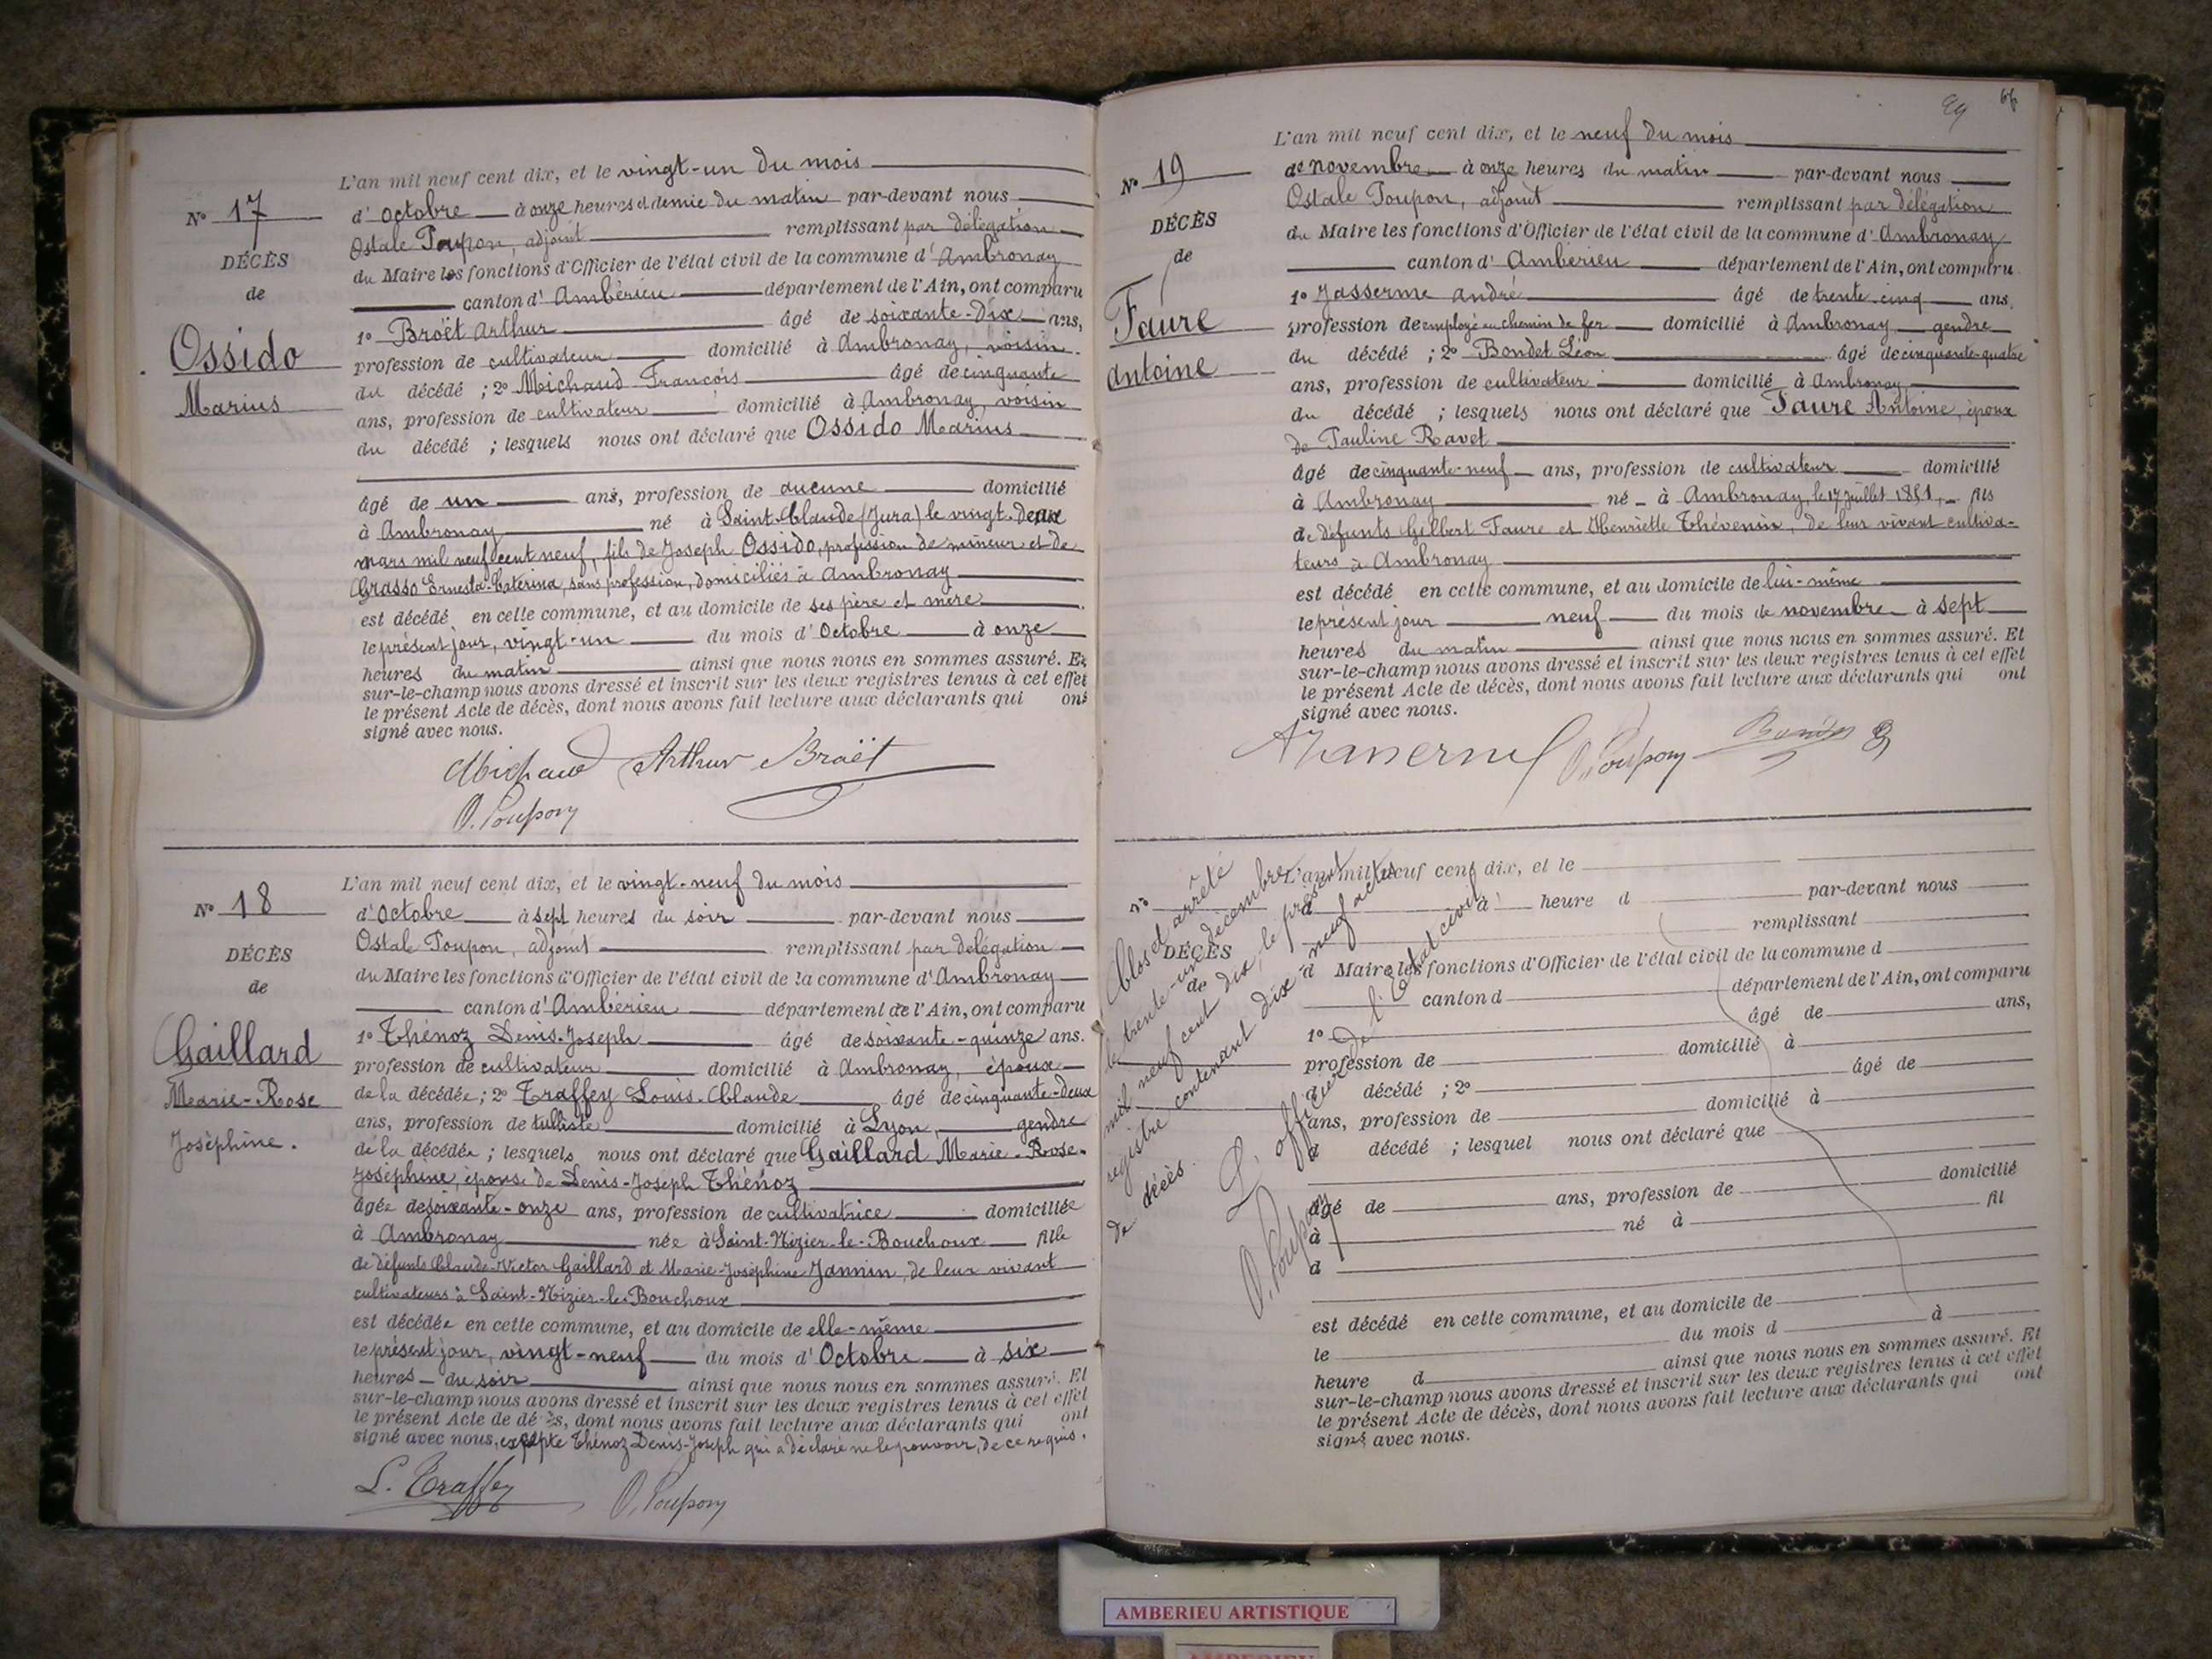 L'an mil neuf cent dix, et le vingt-un du mois
Nº 17
d'octobre à onze heures et demie du matin par-devant nous
Ostale Poupon, adjoint remplissant par délégation
DÉCÈS
du Maire les fonctions d'Officier de l'état civil de la commune d'Ambronay
de
canton d'Ambérieu département de l'Ain, ont comparu
1º Broët Arthur âgé de soixante-dix ans,
Ossido
profession de cultivateur domicilié à Ambronay, voisin
du décédé ; 2º Michaud François âgé de cinquante
Marius
ans, profession de cultivateur domicilié à Ambronay, voisin
du décédé ; lesquels nous ont déclaré que Ossido Marius
âgé de un ans, profession de aucune domicilié
à Ambronay né à Saint-Claude (Jura) le vingt-deux
mars mil neuf cent neuf, fils de Joseph Ossido, profession de mineur et de
Grasso Ernesta-Caterina, sans profession, domiciliés à Ambronay
est décédé en cette commune, et au domicile de ses père et mère
le présent jour, vingt-un du mois d'Octobre à onze
heures du matin ainsi que nous nous en sommes assuré. Et
sur-le-champ nous avons dressé et inscrit sur les deux registres tenus à cet effet
le présent Acte de décès, dont nous avons fait lecture aux déclarants qui ont
signé avec nous.
Michaud Arthur Broët
O. Poupon
L'an mil neuf cent dix, et le vingt-neuf du mois
Nº 18
d'Octobre à sept heures du soir par-devant nous
Ostale Poupon, adjoint remplissant par délégation
DÉCÈS
du Maire les fonctions d'Officier de l'état civil de la commune d'Ambronay
de
canton d'Ambérieu département de l'Ain, ont comparu
1º Thénoz Denis-Joseph âgé de soixante-quinze ans.
Gaillard
profession de cultivateur domicilié à Ambronay, époux
de la décédée ; 2º Traffey Louis-Claude âgé de cinquante-deux
Marie-Rose
ans, profession de tulliste domicilié à Lyon, gendre
Joséphine.
de la décédée ; lesquels nous ont déclaré que Gaillard Marie-Rose-
Joséphine, épouse de Denis-Joseph Thénoz
âgée de soixante-onze ans, profession de cultivatrice domiciliée
à Ambronay née à Saint-Nizier-le-Bouchoux fille
de défunts Claude-Victor Gaillard et Marie-Joséphine Jannin, de leur vivant
cultivateurs à Saint-Nizier-le-Bouchoux
est décédée en cette commune, et au domicile de elle-même
le présent jour, vingt-neuf du mois d'Octobre à six
heures du soir ainsi que nous nous en sommes assuré. Et
sur-le-champ nous avons dressé et inscrit sur les deux registres tenus à cet effet
le présent Acte de décès, dont nous avons fait lecture aux déclarants qui ont
signé avec nous, excepté Thénoz Denis-Joseph qui a déclaré ne le pouvoir, de ce requis.
L. Traffey O. Poupon
L'an mil neuf cent dix, et le neuf du mois
Nº 19
de novembre à onze heures du matin par-devant nous
Ostale Poupon, adjoint remplissant par délégation
DÉCÈS
du Maire les fonctions d'Officier de l'état civil de la commune d'Ambronay
de
canton d'Ambérieu département de l'Ain, ont comparu
1º Jasserme André âgé de trente-cinq ans.
Faure
profession de employé au chemin de fer domicilié à Ambronay gendre
du décédé ; 2º Bondet Léon âgé de cinquante-quatre
Antoine
ans, profession de cultivateur domicilié à Ambronay
du décédé ; lesquels nous ont déclaré que Faure Antoine, époux
de Pauline Ravet
âgé de cinquante-neuf ans, profession de cultivateur domicilié
à Ambronay né à Ambronay, le 17 juillet 1851, fils
de défunts Gilbert Faure et Henriette Thévenin, de leur vivant cultiva-
teurs à Ambronay
est décédé en cette commune, et au domicile de lui-même
le présent jour neuf du mois de novembre à sept
heures du matin ainsi que nous nous en sommes assuré. Et
sur-le-champ nous avons dressé et inscrit sur les deux registres tenus à cet effet
le présent Acte de décès, dont nous avons fait lecture aux déclarants qui ont
signé avec nous.
O. Poupon
L'an mil neuf cent dix, et le
Nº
d à heure d par-devant nous
remplissant
DÉCÈS
d Maire les fonctions d'Officier de l'état civil de la commune d
de
canton d département de l'Ain, ont comparu
1º âgé de ans,
profession de domicilié à
d décédé ; 2º âgé de
ans, profession de domicilié à
d décédé ; lesquel nous ont déclaré que
âgé de ans, profession de domicilié
à né à fil
d
est décédé en cette commune, et au domicile de
le du mois d à
heure d ainsi que nous nous en sommes assuré. Et
sur-le-champ nous avons dressé et inscrit sur les deux registres tenus à cet effet
le présent Acte de décès, dont nous avons fait lecture aux déclarants qui ont
signé avec nous.
Clos et arrêté
le trente-un décembre
mil neuf cent dix, le présent
registre contenant dix-neuf actes
de décès.
L'officier de l'Etat civil
O. Poupon
AMBERIEU ARTISTIQUE
AMBERIEU